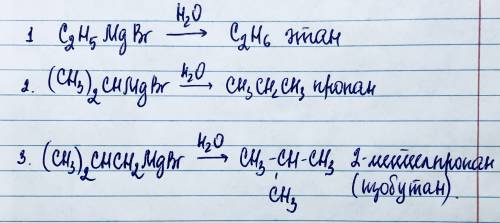 1 C₂H₅MgBr H₂O→ C₂H₆ этан
2. (CH₃)₂CHMgBr H₂O→ CH₃CH₂CH₃ пропан
3. (CH₃)₂CHCH₂MgBr H₂O→ CH₃-CH-CH₃ 2-метилпропан
CH₃ (изобутан).